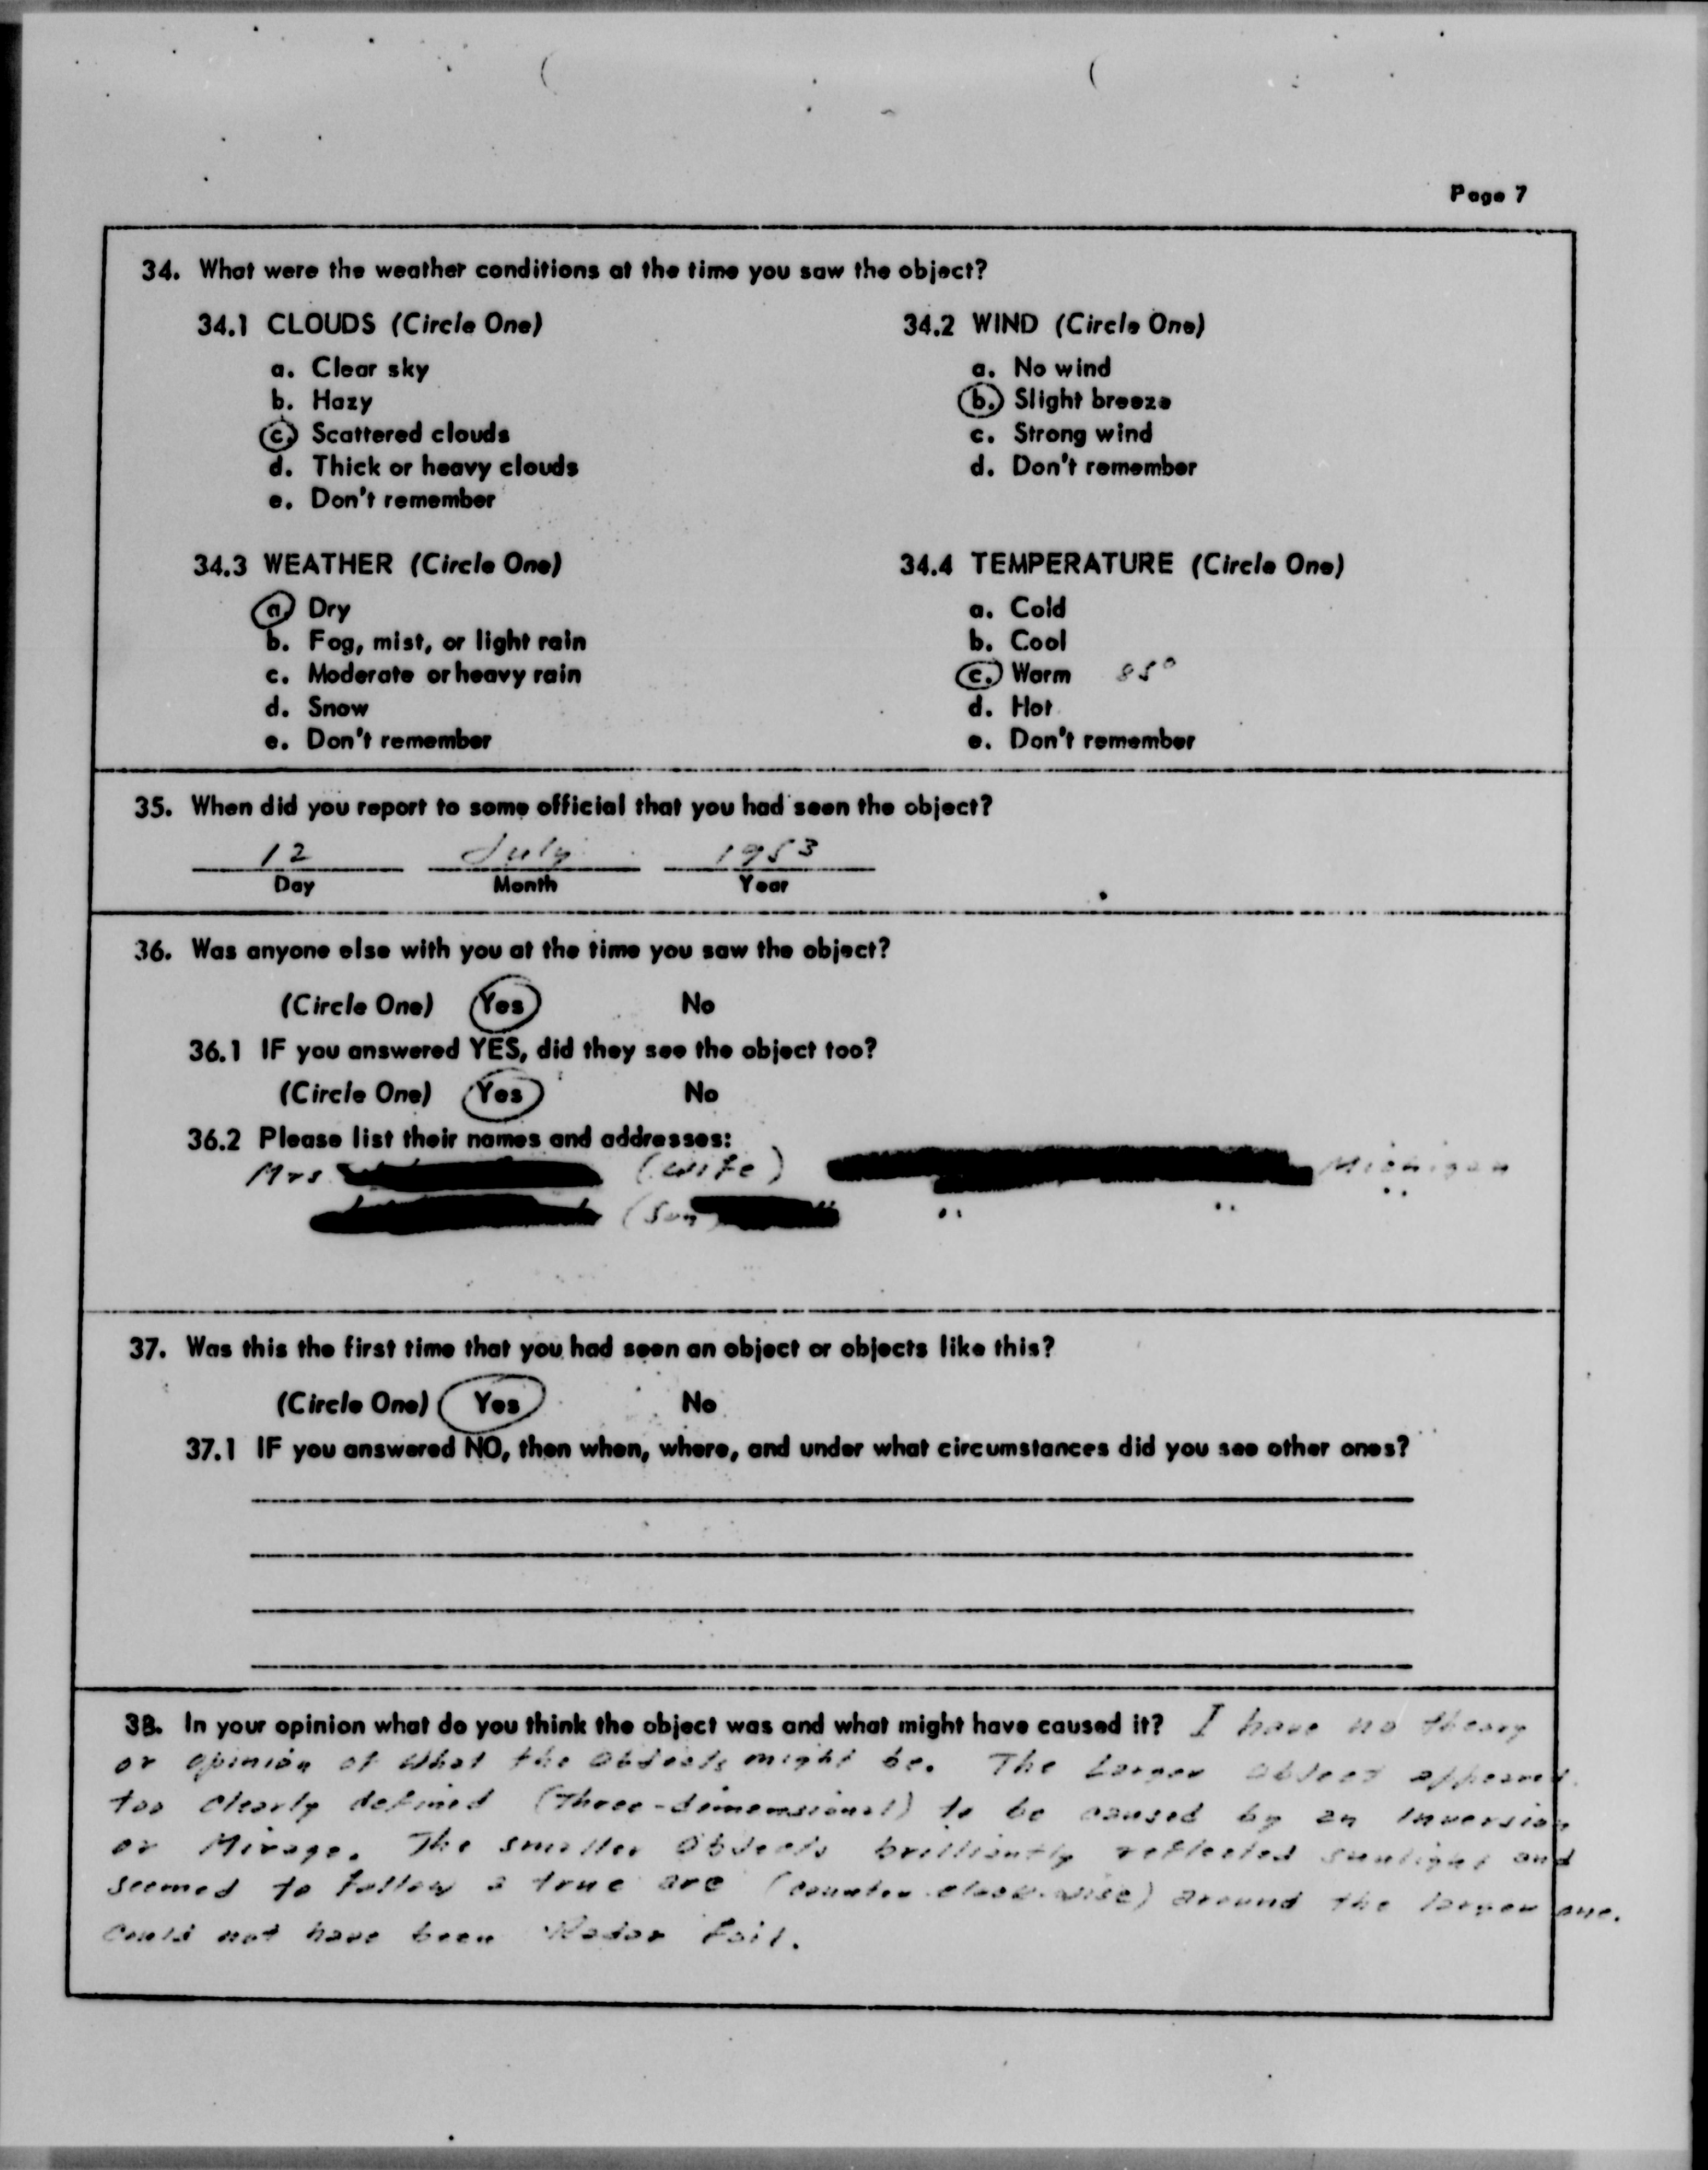 Page 7
34. What were the weather conditions at the time you saw the object?
34.1 CLOUDS (Circle One)
a. Clear sky
b. Hazy
c. Scattered clouds
d. Thick or heavy clouds
e. Don't remember
34.2 WIND (Circle One)
a. No wind
b. Slight breeze
c. Strong wind
d. Don't remember
34.3 WEATHER (Circle One)
a. Dry
b. Fog, mist, or light rain
c. Moderate or heavy rain
d. Snow
e. Don't remember
34.4 TEMPERATURE (Circle One)
a. Cold
b. Cool
c. Warm 85°
d. Hot
e. Don't remember
35. When did you report to some official that you had seen the object?
12 July 1953
Day Month Year
36. Was anyone else with you at the time you saw the object?
(Circle One) Yes No
36.1 IF you answered YES, did they see the object too?
(Circle One) Yes No
36.2 Please list their names and addresses:
Mrs (wife) Michigan
(Son " "
37. Was this the first time that you had seen an object or objects like this?
(Circle One) Yes No
37.1 IF you answered NO, then when, where, and under what circumstances did you see other ones?
38. In your opinion what do you think the object was and what might have caused it? I have no theory
or opinion of what the objects might be. The Larger object appeared
too clearly defined (three-dimensional) to be caused by an inversion
or Mirage. The smaller objects brilliantly reflected sunlight and
seemed to follow a true arc (counter-clock-wise) around the larger one.
Could not have been Radar Foil.